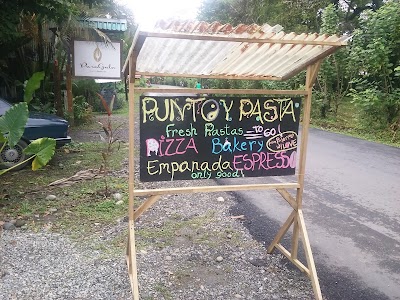 PUNTO Y PASTA
Fresh Pastas TO GO
PIZZA Bakery
Empanada ESPRESSO
only good!